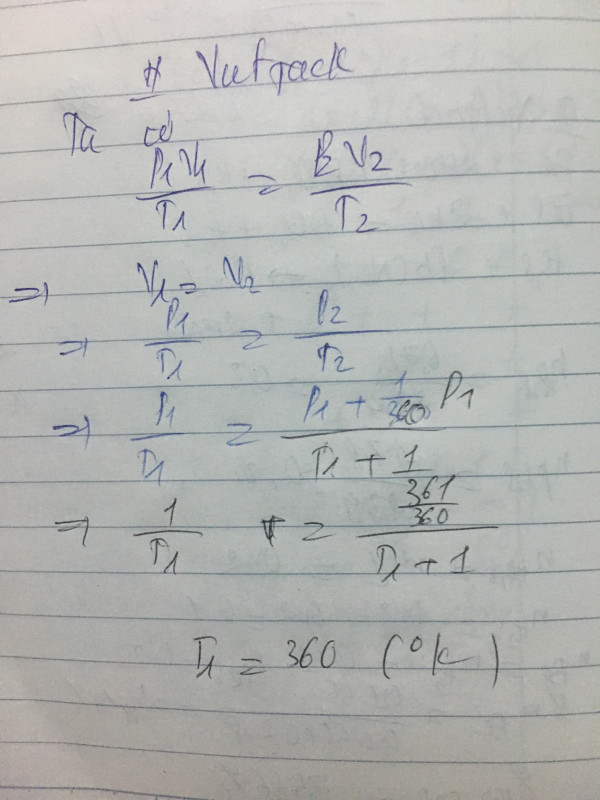 # Vutrack
Ta có
P₁V₁/T₁ = P₂V₂/T₂
⇒ V₁ = V₂
⇒ P₁/T₁ = P₂/T₂
⇒ P₁/T₁ = (P₁ + 1/360 P₁)/(T₁ + 1)
⇒ 1/T₁ = (361/360)/(T₁ + 1)
T₁ = 360 (°K)